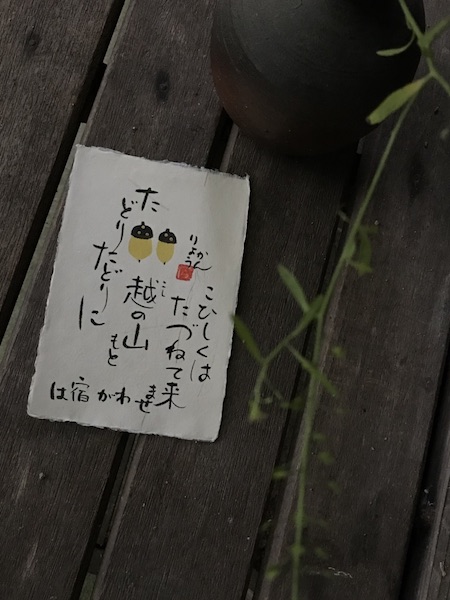 わが宿は
越の山もと
こひしくは
たづねて来ませ
たどりたどりに
りょうかん